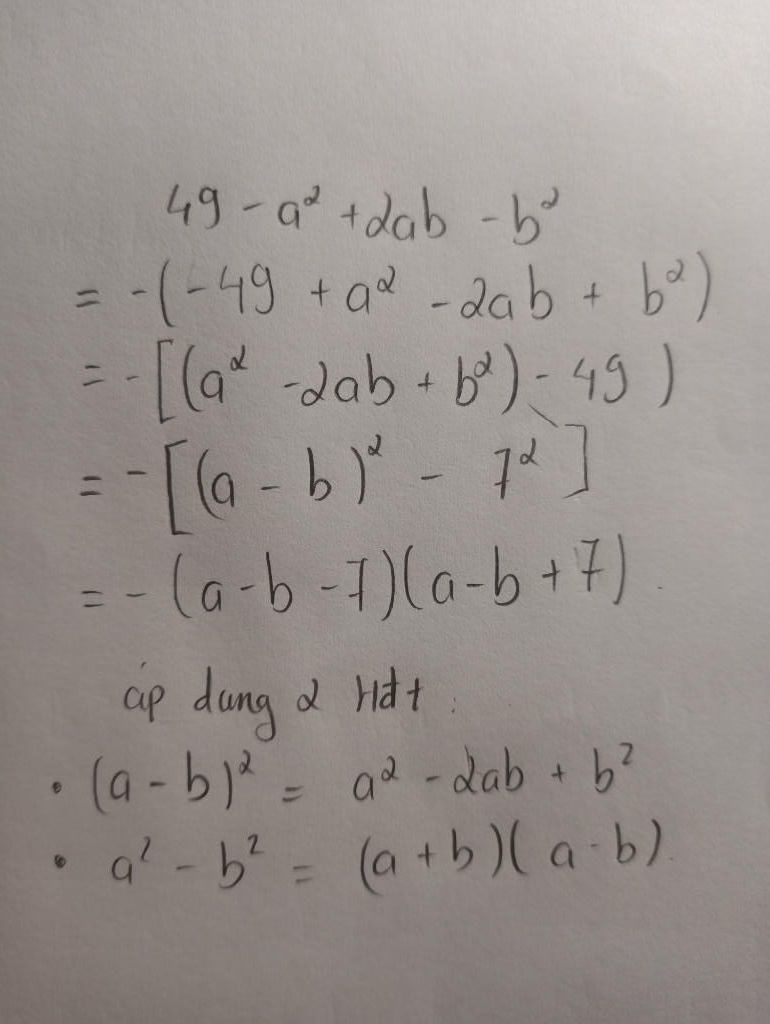 49 - a² + 2ab - b²
= -(-49 + a² - 2ab + b²)
= -[(a² - 2ab + b²) - 49)
= -[(a - b)² - 7²]
= -(a-b-7)(a-b+7).
áp dung 2 Hđt:
• (a - b)² = a² - 2ab + b²
• a² - b² = (a + b)(a - b).